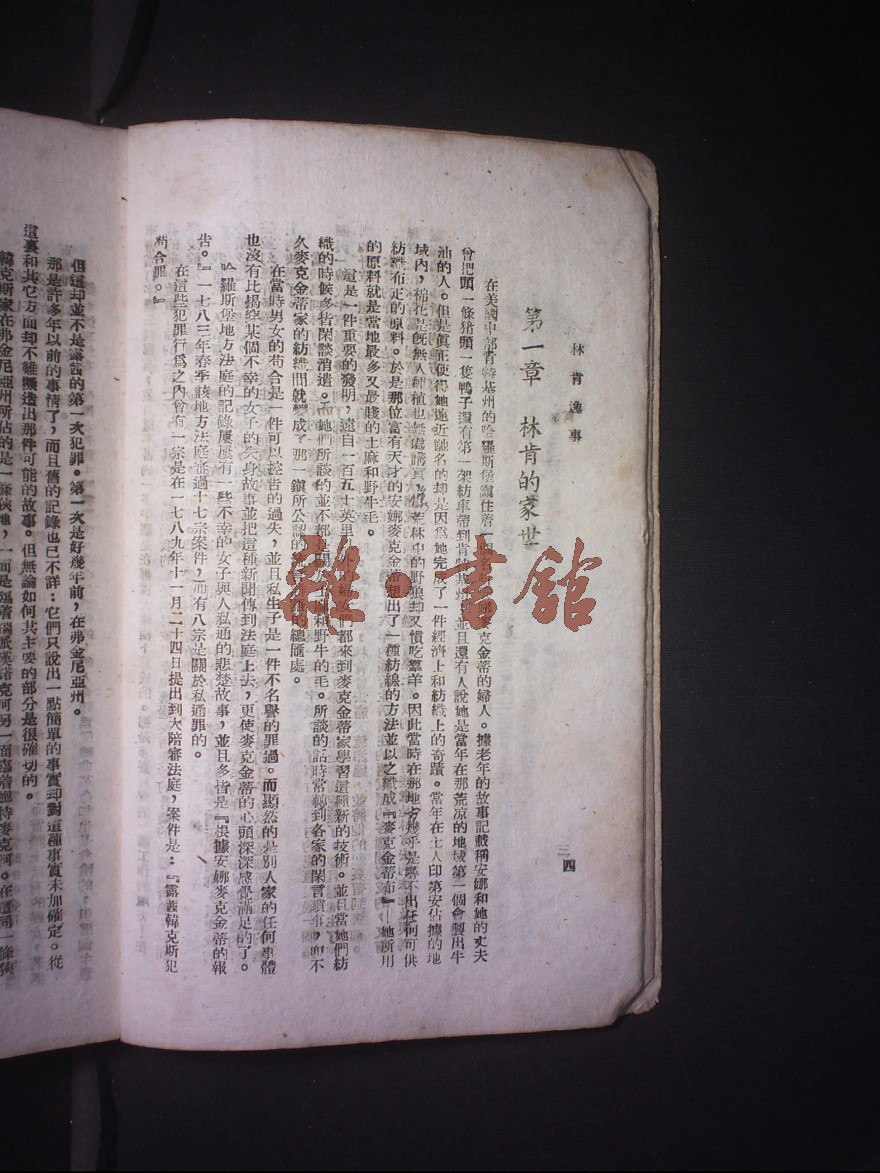 林肯逸事
三四
第一章 林肯的家世
在美國中部肯特基州的哈羅斯堡鎮住着一個名叫安娜麥克金蒂的婦人。據老年的故事記載稱安娜和她的丈夫
曾把頭一條猪頭一隻鴨子還有第一架紡車帶到肯特基州,並且還有人說她是當年在那荒凉的地域第一個會製出牛
油的人。但是眞正使得她遠近馳名的却是因爲她完成了一件經濟上和紡織上的奇蹟。當年在土人印第安佔據的地
域內,棉花是旣無人種植也無處購買,但叢林中的野狼却又慣吃羣羊。因此當時在那地方幾乎是尋不出任何可供
紡織布疋的原料。於是那位富有天才的安娜麥克金蒂想出了一種紡線的方法並以之織成『麥克金蒂布』——她所用
的原料就是當地最多又最賤的土麻和野牛毛。
這是一件重要的發明,遠自一百五十英里 都來到麥克金蒂家學習這種新的技術。並且當她們紡
織的時候多皆閑談消遣。而她們所談的並不都是關於 和野牛的毛。所談的話時常轉到各家的閑言瑣事,而不
久麥克金蒂家的紡織間就變成了那一鎮所公認的 的總匯處。
在當時男女的苟合是一件可以控吿的過失,並且私生子是一件不名譽的罪過。而顯然的是別人家的任何事體
也沒有比揭穿某個不幸的女子的失身故事並把這種新聞傳到法庭上去,更使麥克金蒂的心頭深深感覺滿足的了。
哈羅斯堡地方法庭的記錄屢屢有一些不幸的女子與人私通的悲楚故事,並且多皆是『根據安娜麥克金蒂的報
吿。』一七八三年春季該地方法庭審過十七宗案件,而有八宗是關於私通罪的。
在這些犯罪行爲之內曾有一宗是在一七八九年十一月二十四日提出到大陪審法庭,案件是:『露茜韓克斯犯
苟合罪。』
但這却並不是露茜的第一次犯罪。第一次是好幾年前,在弗金尼亞州。
那是許多年以前的事情了,而且舊的記錄也已不詳:它們只說出一點簡單的事實却對這種事實未加確定。從
這裏和其它方面却不難懸造出那件可能的故事。但無論如何其主要的部分是很確切的。
韓克斯家在弗金尼亞州所佔的是一條狹地,一面是
雜·書館